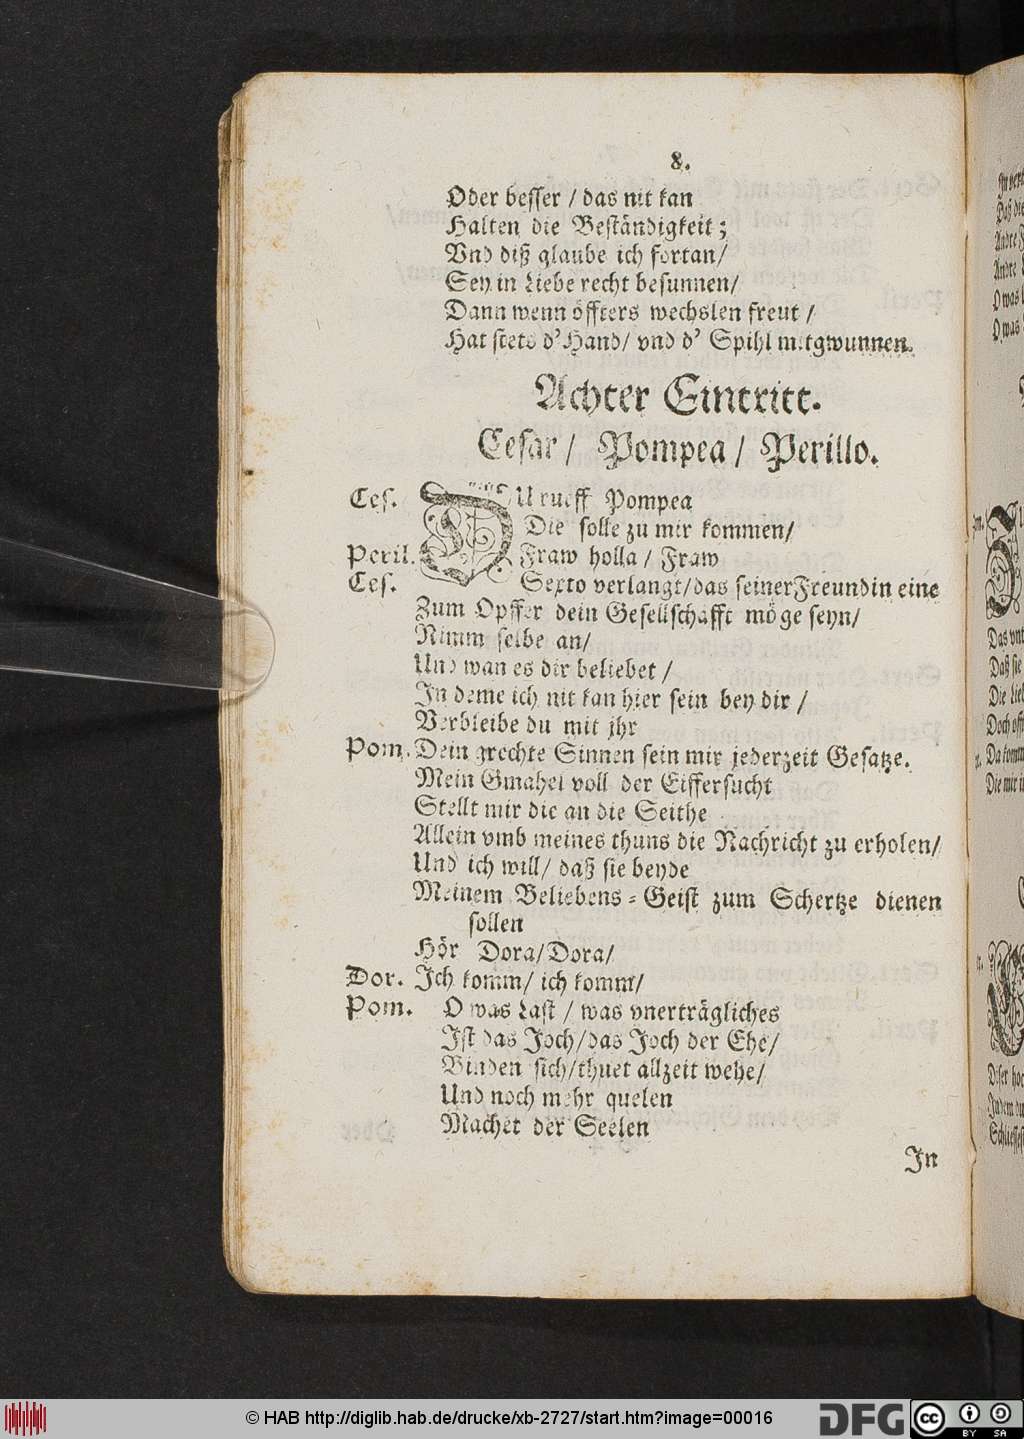 8.
Oder besser / das nit kan
Halten die Beständigkeit;
Vnd diß glaube ich fortan/
Sey in Liebe recht besunnen/
Dann wenn öffters wechslen freut /
Hat stets d' Hand/ vnd d' Spihl mitgwunnen.
Achter Eintritt.
Cesar / Pompea / Perillo.
Ces. DU rueff Pompea
Die solle zu mir kommen/
Peril. Fraw holla / Fraw
Ces. Sexto verlangt/das seiner Freundin eine
Zum Opffer dein Gesellschafft möge seyn/
Nimm selbe an/
Und wan es dir beliebet /
In deme ich nit kan hier sein bey dir /
Verbleibe du mit jhr
Pom. Dein grechte Sinnen sein mir jederzeit Gesatze.
Mein Gmahel voll der Eiffersucht
Stellt mir die an die Seithe
Allein vmb meines thuns die Nachricht zu erholen/
Und ich will/ daß sie beyde
Meinem Beliebens-Geist zum Schertze dienen
sollen
Hör Dora/Dora/
Dor. Ich komm/ ich komm/
Pom. O was Last / was vnerträgliches
Ist das Joch/das Joch der Ehe/
Binden sich/thuet allzeit wehe/
Und noch mehr quelen
Machet der Seelen
In
© HAB http://diglib.hab.de/drucke/xb-2727/start.htm?image=00016
DFG
cc BY SA